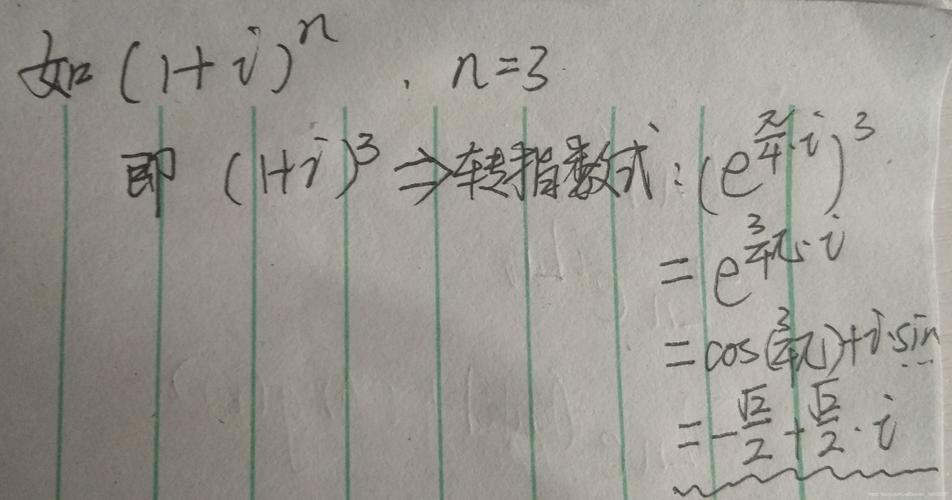 如 (1+i)^n , n=3
即 (1+i)^3 ⇒ 转指数式: (e^{\frac{π}{4}·i})^3
= e^{\frac{3}{4}π·i}
= cos(\frac{3}{4}π)+i·sin
= -\frac{√2}{2} + \frac{√2}{2}·i